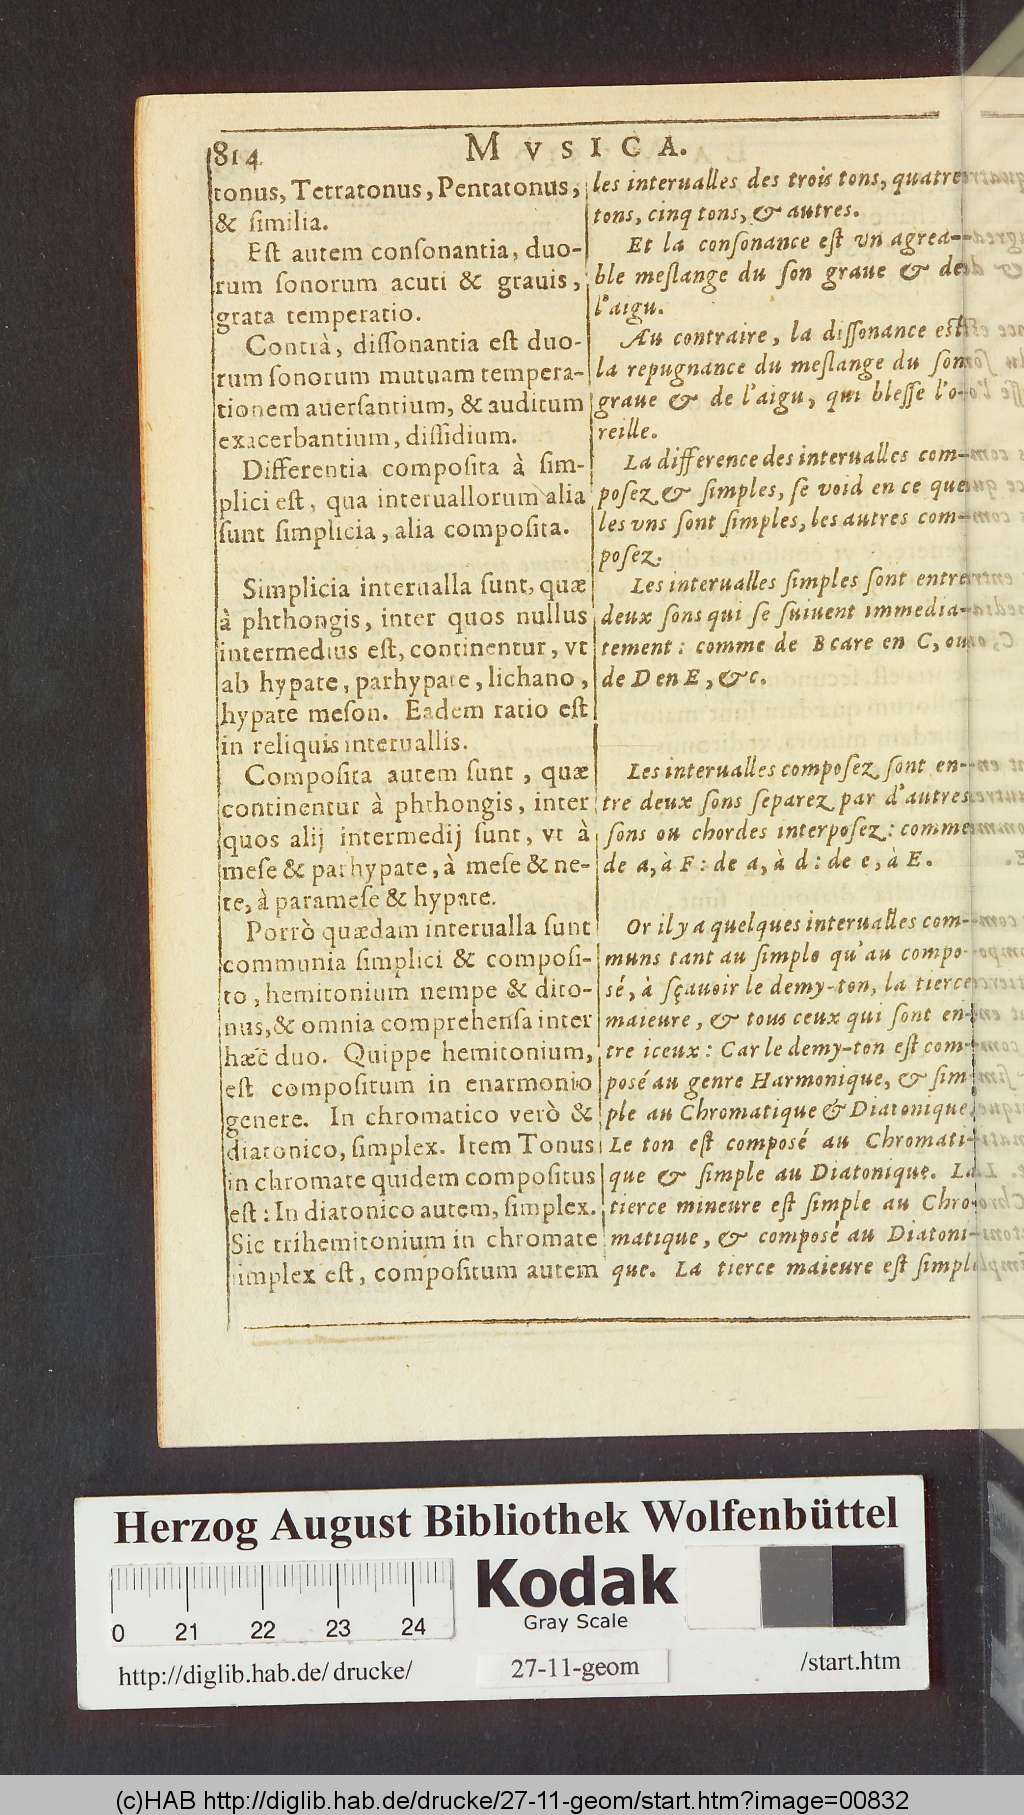 814 MVSICA.
tonus, Tetratonus, Pentatonus,
& ſimilia.
Eſt autem conſonantia, duo-
rum ſonorum acuti & grauis,
grata temperatio.
Contrà, diſſonantia eſt duo-
rum ſonorum mutuam tempera-
tionem auerſantium, & auditum
exacerbantium, diſſidium.
Differentia compoſita à ſim-
plici eſt, qua interuallorum alia
ſunt ſimplicia, alia compoſita.
Simplicia interualla ſunt, quæ
à phthongis, inter quos nullus
intermedius eſt, continentur, vt
ab hypate, parhypate, lichano,
hypate meſon. Eadem ratio eſt
in reliquis interuallis.
Compoſita autem ſunt, quæ
continentur à phthongis, inter
quos alij intermedij ſunt, vt à
meſe & parhypate, à meſe & ne-
te, à parameſe & hypate.
Porrò quædam interualla ſunt
communia ſimplici & compoſi-
to, hemitonium nempe & dito-
nus, & omnia comprehenſa inter
hæc duo. Quippe hemitonium,
eſt compoſitum in enarmonio
genere. In chromatico verò &
diatonico, ſimplex. Item Tonus
in chromate quidem compoſitus
eſt: In diatonico autem, ſimplex.
Sic trihemitonium in chromate
ſimplex eſt, compoſitum autem
les interualles des trois tons, quatre
tons, cinq tons, & autres.
Et la conſonance eſt vn agrea-
ble meſlange du ſon graue & de
l'aigu.
Au contraire, la diſſonance eſt
la repugnance du meſlange du ſon
graue & de l'aigu, qui bleſſe l'o-
reille.
La difference des interualles com-
poſez & ſimples, ſe void en ce que
les vns ſont ſimples, les autres com-
poſez.
Les interualles ſimples ſont entre
deux ſons qui ſe ſuiuent immedia-
tement: comme de B care en C, ou
de D en E, &c.
Les interualles compoſez ſont en-
tre deux ſons ſeparez par d'autres
ſons ou chordes interpoſez: comme
de a, à F: de a, à d: de e, à E.
Or il y a quelques interualles com-
muns tant au ſimple qu'au compo-
sé, à ſçauoir le demy-ton, la tierce
maieure, & tous ceux qui ſont en-
tre iceux: Car le demy-ton eſt com-
posé au genre Harmonique, & ſim-
ple au Chromatique & Diatonique.
Le ton eſt composé au Chromati-
que & ſimple au Diatonique. La
tierce mineure eſt ſimple au Chro-
matique, & composé au Diatoni-
que. La tierce maieure eſt ſimple
Herzog August Bibliothek Wolfenbüttel
Kodak
Gray Scale
0 21 22 23 24
http://diglib.hab.de/drucke/ 27-11-geom /start.htm
(c)HAB http://diglib.hab.de/drucke/27-11-geom/start.htm?image=00832